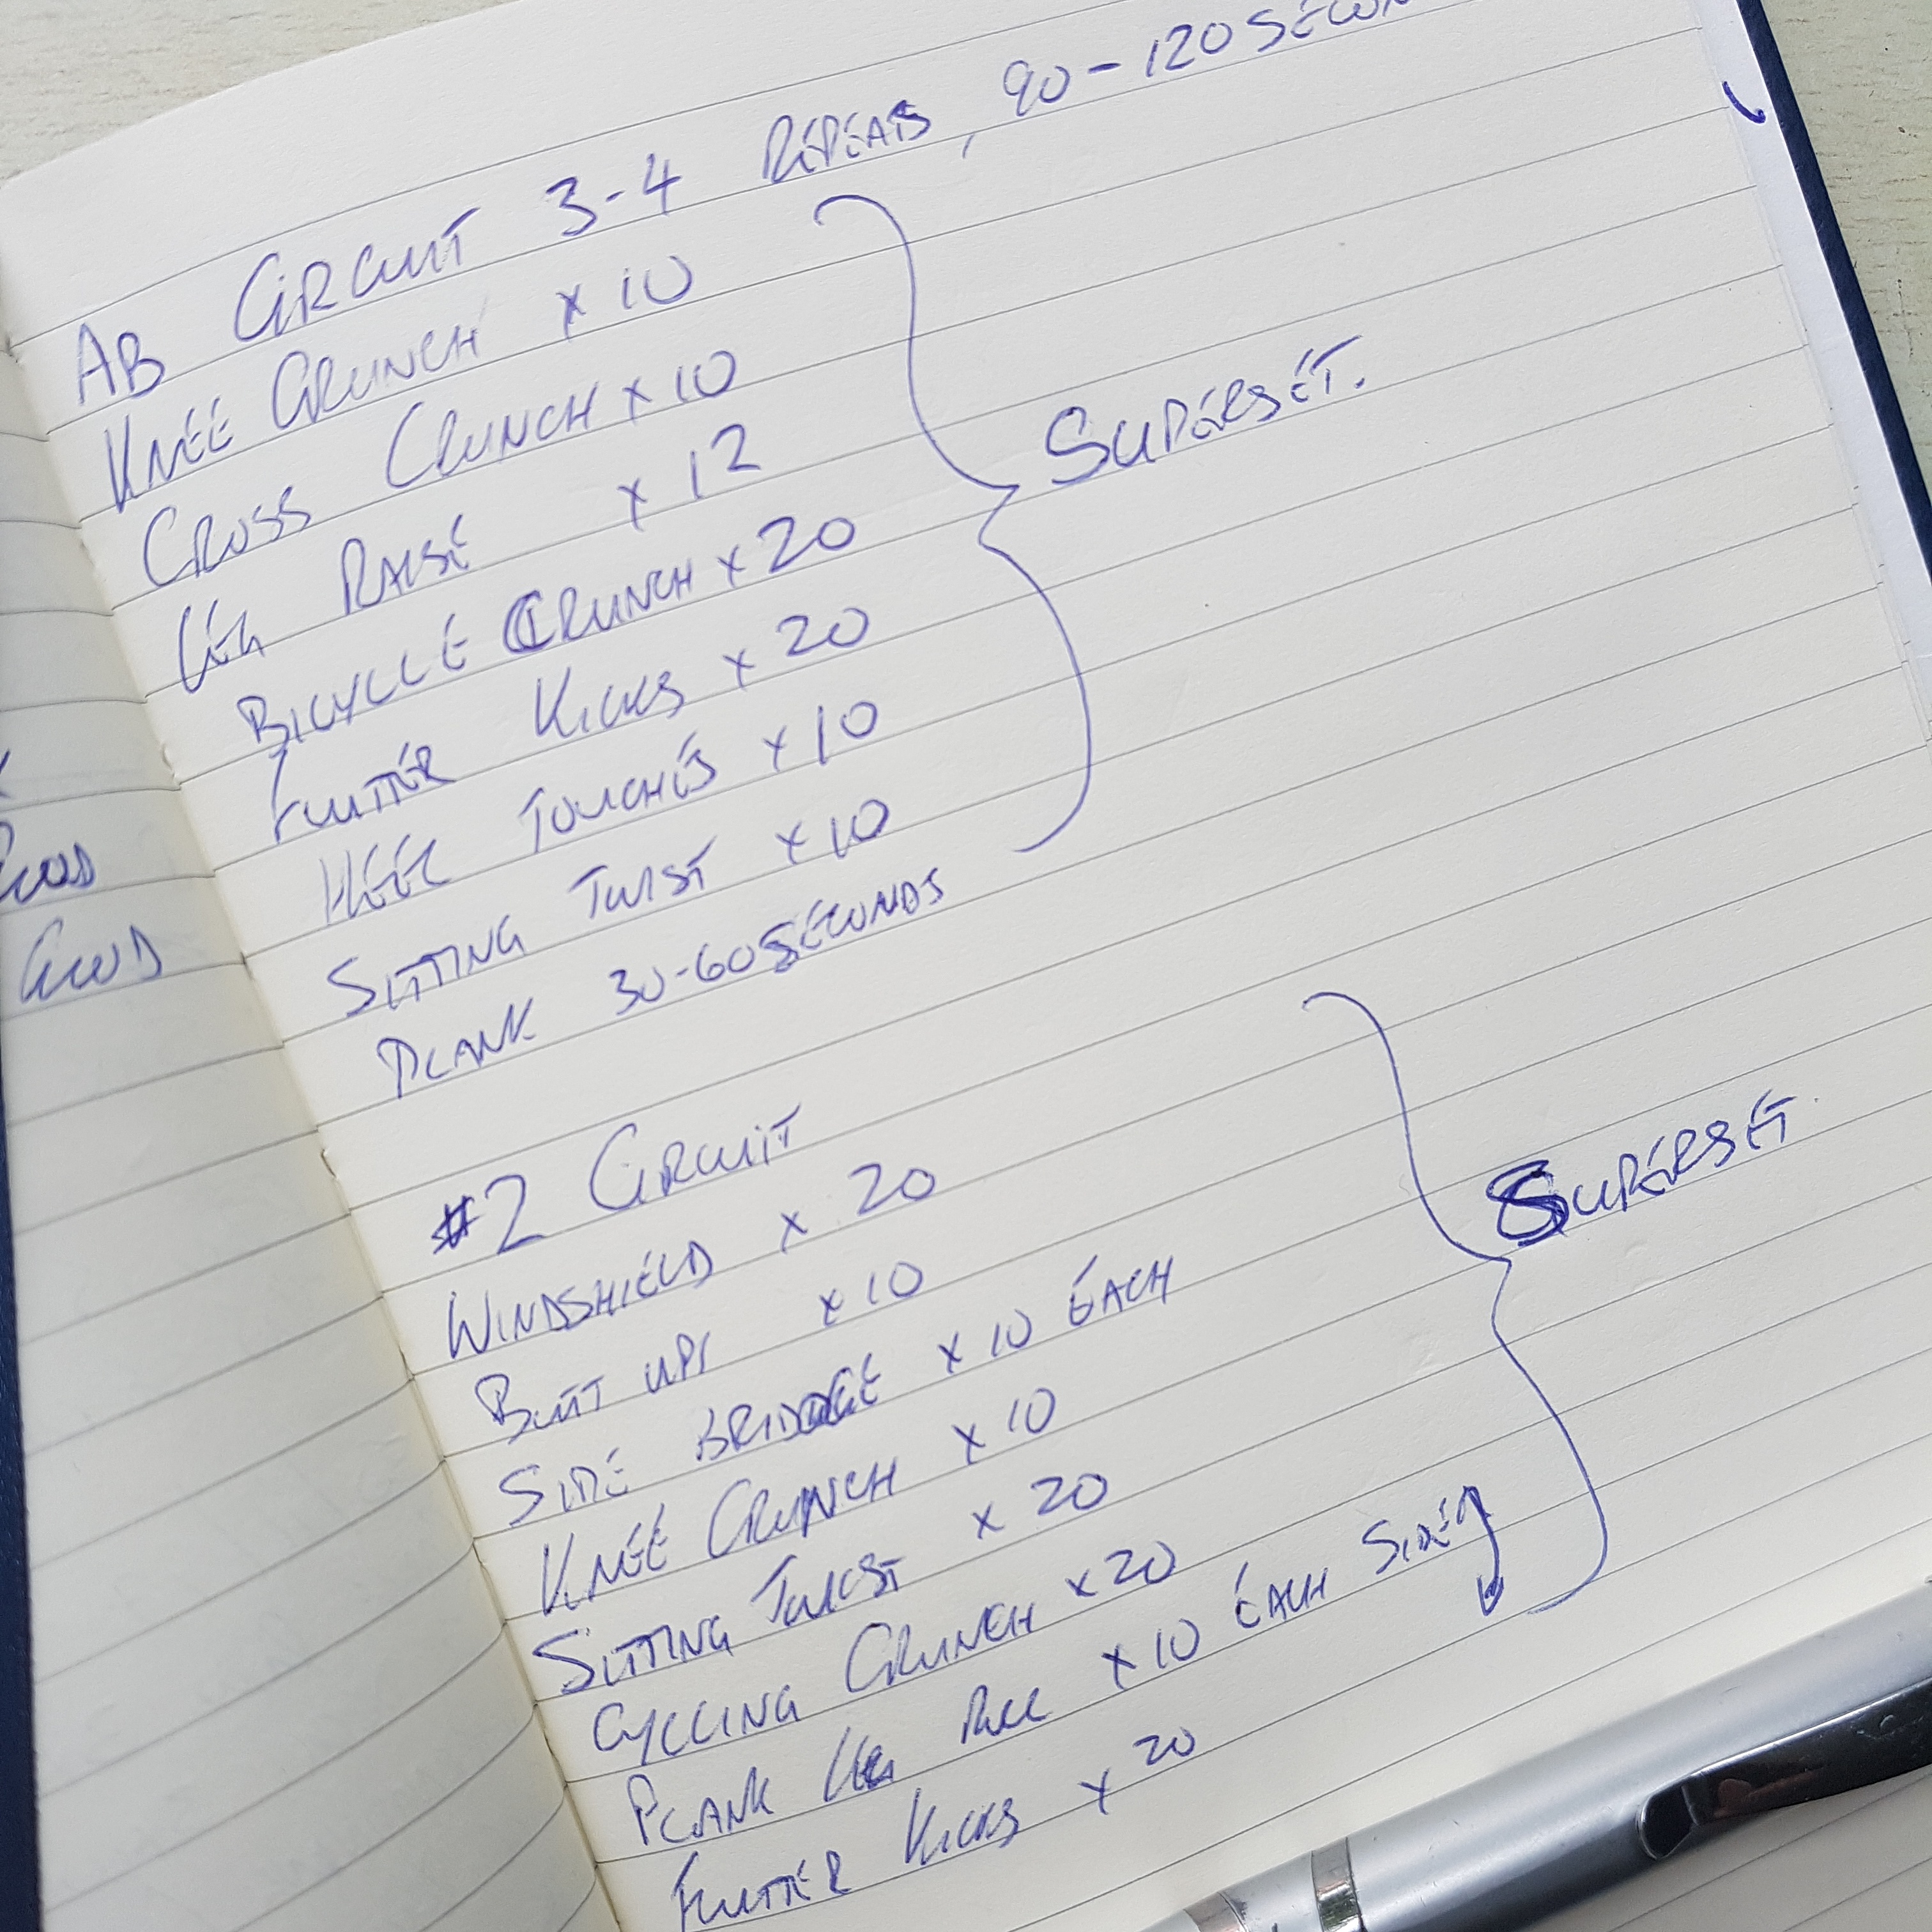 AB CIRCUIT 3-4 REPEATS, 90-120 SECON
KNEE CRUNCH x 10
CROSS CRUNCH x 10
LEG RAISE x 12
BICYCLE CRUNCH x 20
FLUTTER KICKS x 20
HEEL TOUCHES x 10
SITTING TWIST x 10
PLANK 30-60 SECONDS
SUPERSET.
#2 CIRCUIT
WINDSHIELD x 20
BUTT UPS x 10
SIDE BRIDGE x 10 EACH
KNEE CRUNCH x 10
SITTING TWIST x 20
CYCLING CRUNCH x 20
PLANK LEG x 10 EACH SIDE
FLUTTER KICKS x 20
SUPERSET.
GOOD